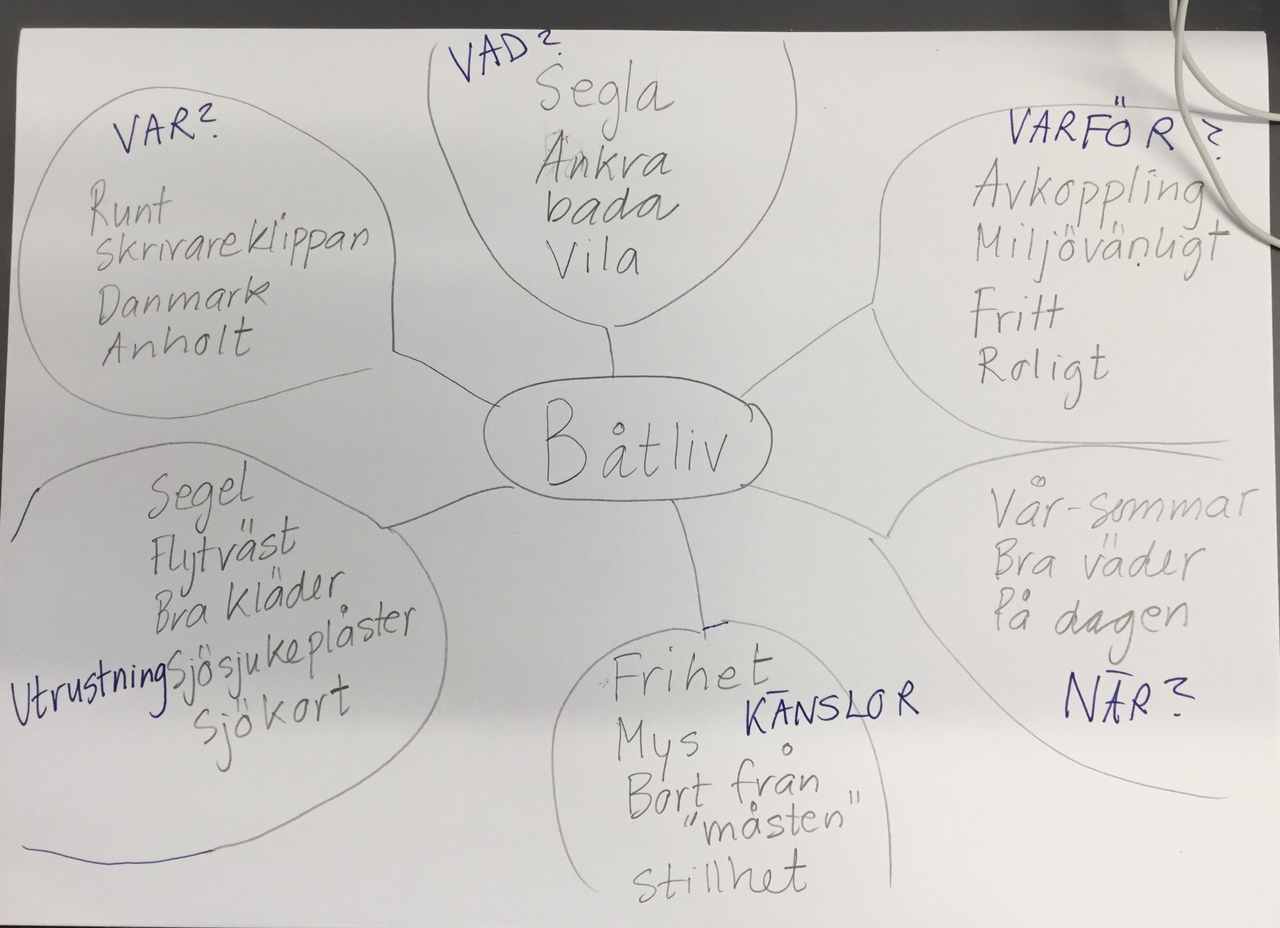 VAR?
Runt
Skrivareklippan
Danmark
Anholt
VAD?
Segla
Ankra
bada
Vila
VARFÖR?
Avkoppling
Miljövänligt
Fritt
Roligt
Båtliv
Segel
Flytväst
Bra kläder
Utrustning Sjösjukeplåster
Sjökort
Frihet
KÄNSLOR
Mys
Bort från
"måsten"
Stillhet
Vår-sommar
Bra väder
På dagen
NÄR?